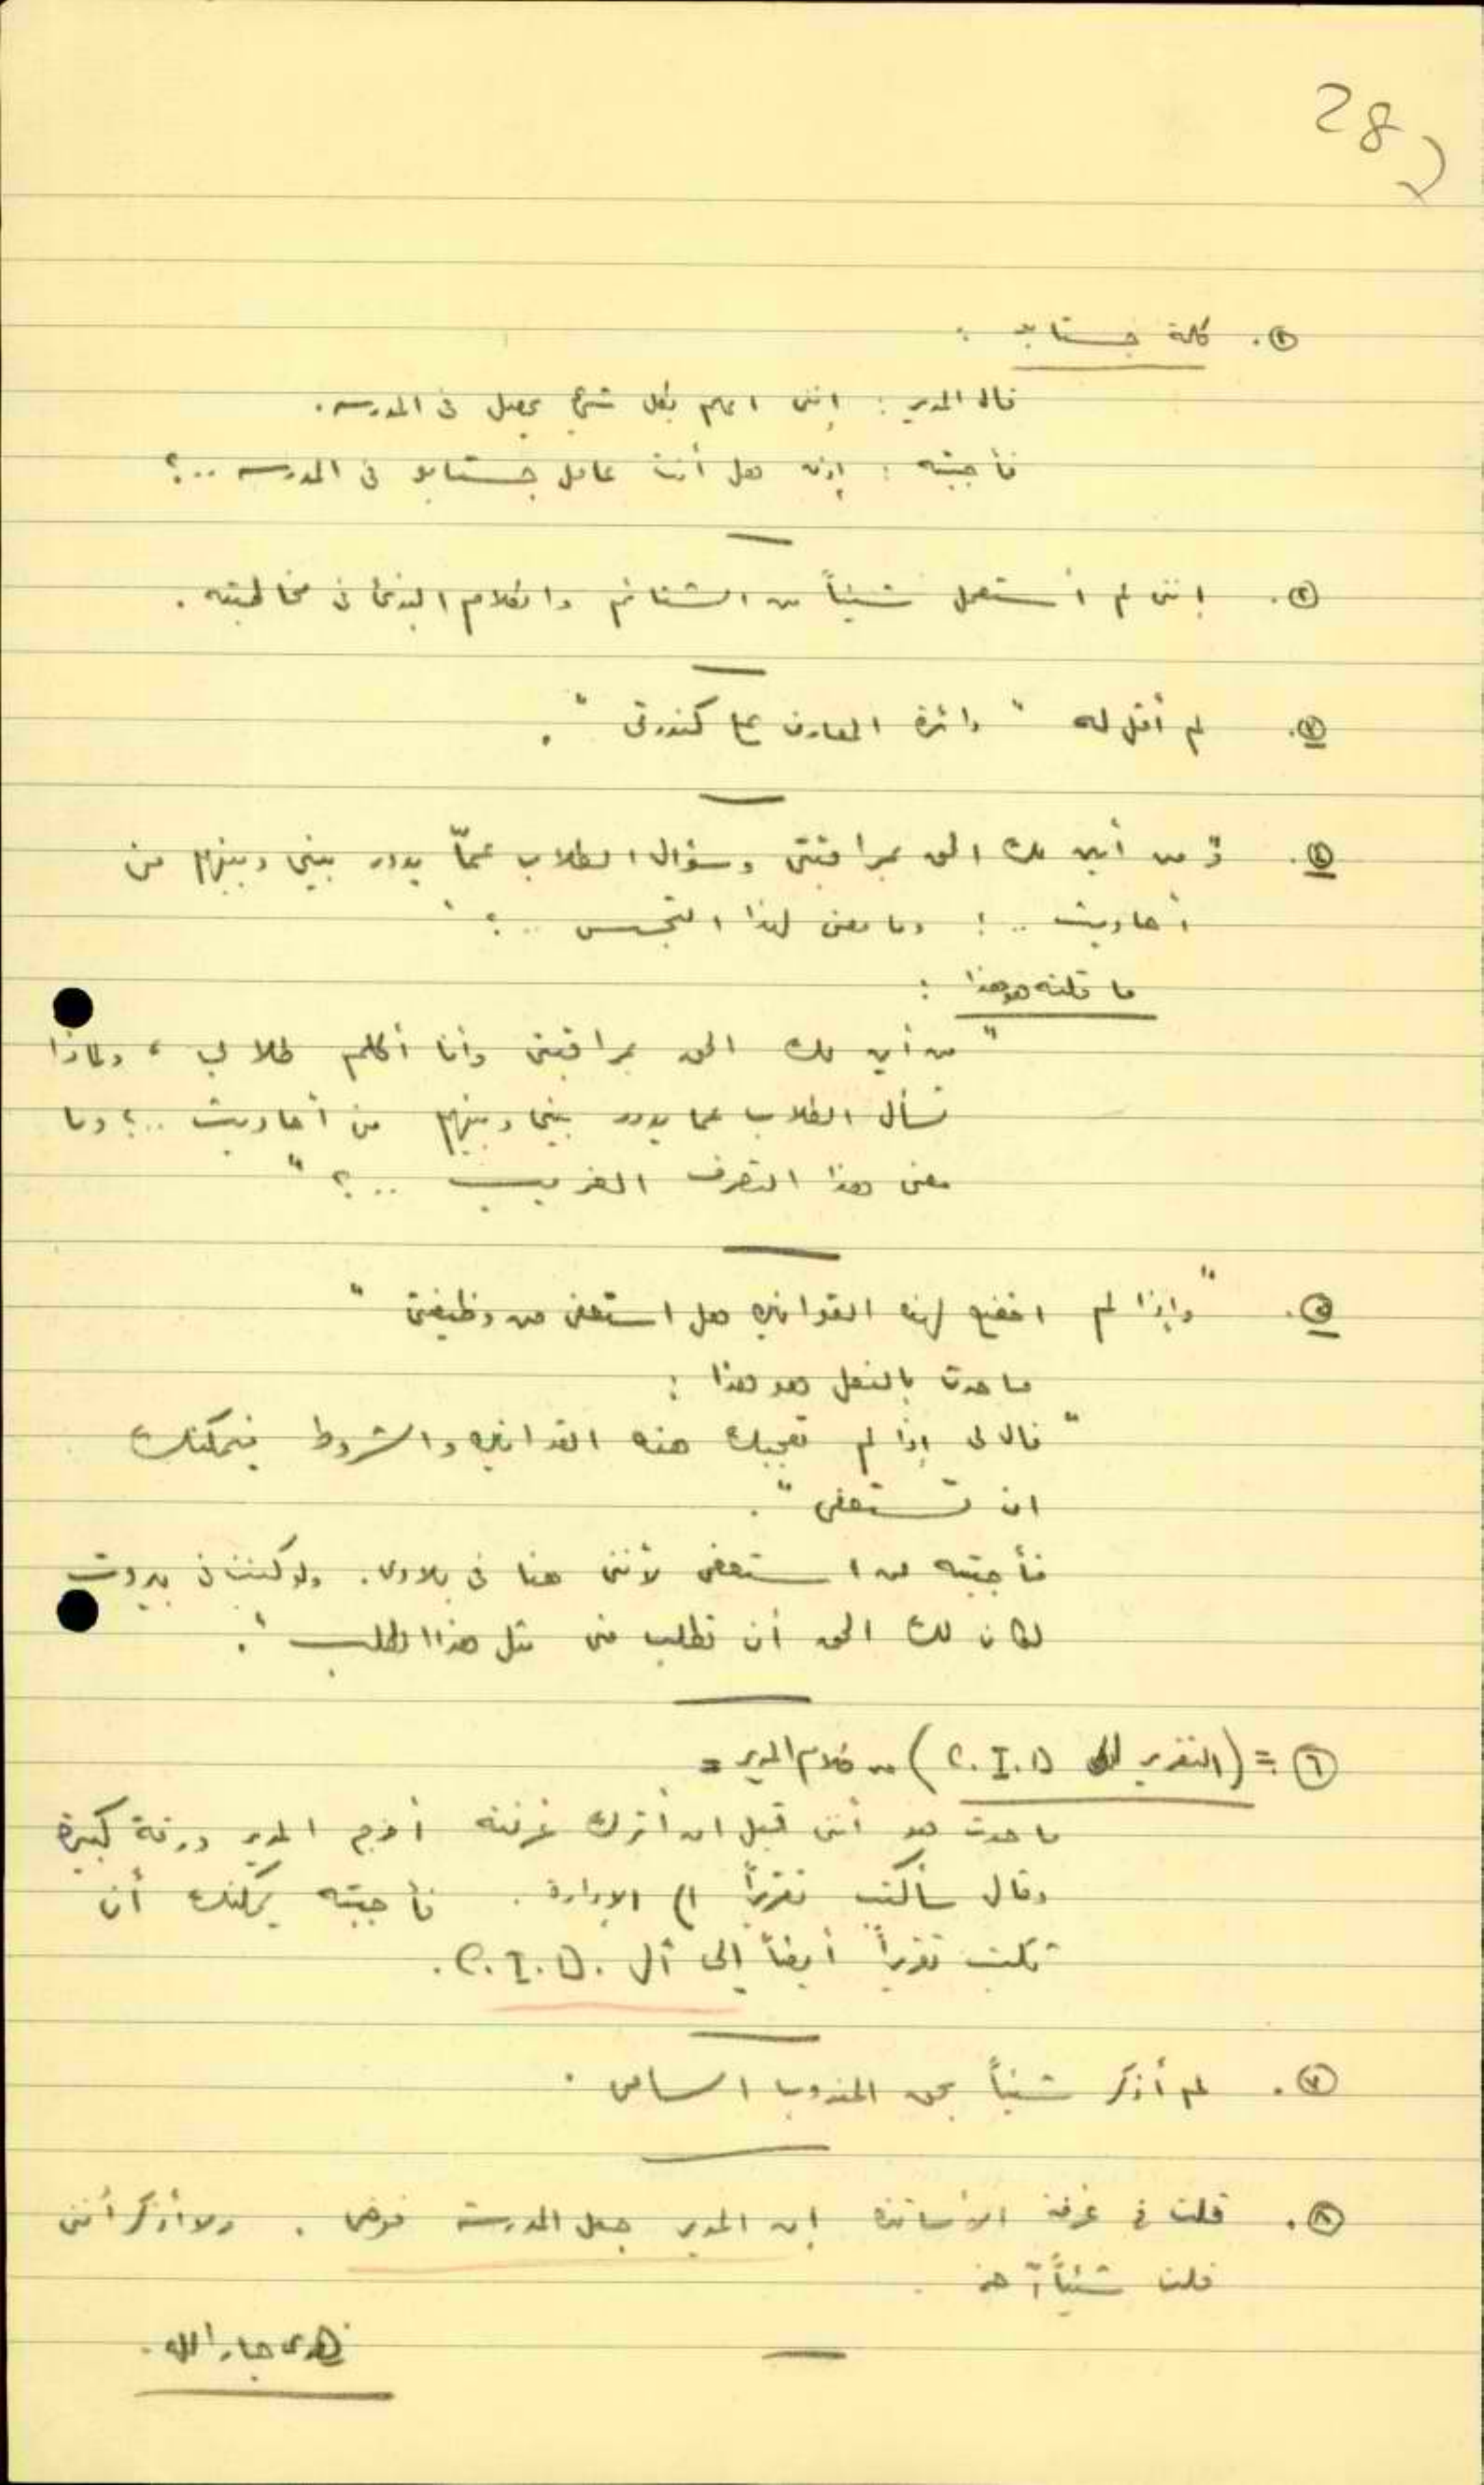 28
١. كلمة جستابو :
قال المدير : إنني اعلم بكل شيء يحصل في المدرسه .
فأجبته : إذن هل أنت عامل جستابو في المدرسه ..؟
٢. إنني لم أستعمل شيئاً من الشتائم والكلام البذئ في مخاطبته .
٣. لم أقل له " دائرة المعارف ع كندرتي " .
٤. " من أين لك الحق بمراقبتي وسؤال الطلاب عمّا يدور بيني وبينهم من
أحاديث ..! وما معنى لهذا التجسس ..؟ "
ما قلته هو هذا :
" من أين لك الحق بمراقبتي وأنا أكلم طلابي ، ولماذا
تسأل الطلاب عما يدور بيني وبينهم من أحاديث ..؟ وما
معنى هذا التصرف الغريب ..؟ "
٥. " وإذا لم اخضع لهذه القوانين هل استعفي من وظيفتي "
ما حدث بالفعل هو هذا :
" قال لي إذا لم تعجبك هذه القوانين والشروط فيمكنك
ان تستعفي " .
فأجبته لن استعفي لأنني هنا في بلادي . ولو كنت في بيروت
لكان لك الحق أن تطلب مني مثل هذا الطلب " .
٦ = (التقرير الى C.I.D) من كلام المدير =
ما حدث هو أنني قبل ان أترك غرفته أخرج المدير ورقة كبيرة
وقال سأكتب تقريراً الى الإدارة . فأجبته يمكنك أن
تكتب تقريراً أيضاً إلى أل C.I.D.
٧. لم أذكر شيئاً بحق المندوب السامي .
٨. قلت في غرفة الأساتذة إن المدير جعل المدرسة فوضى . ولا أذكر أنني
قلت شيئاً آخر .
زهدى جار الله .